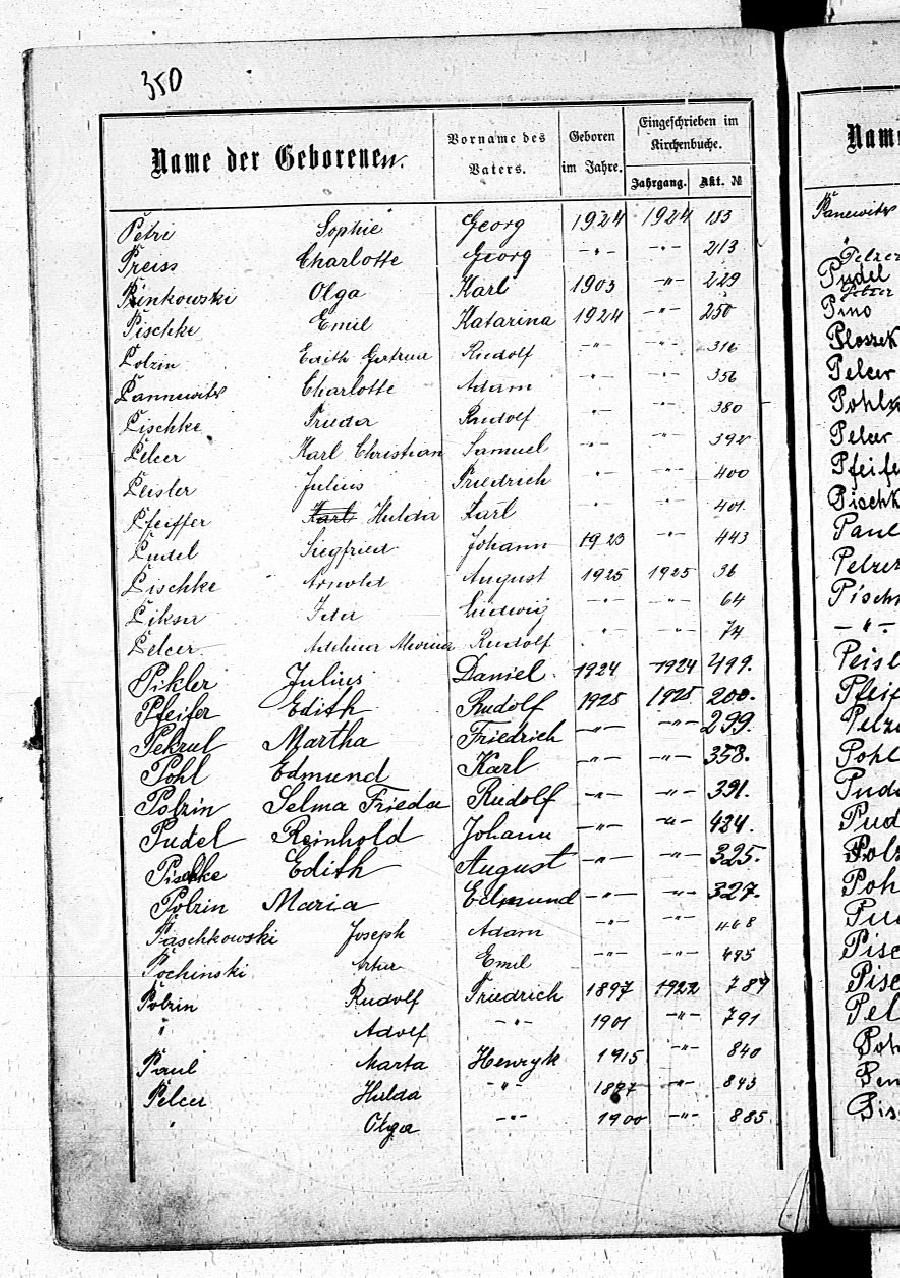 350
Name der Geborenen.
Vorname des Vaters.
Geboren im Jahre.
Eingeschrieben im Kirchenbuche.
Jahrgang. Akt. №
Petri Sophie Georg 1924 1924 183
Preiss Charlotte Georg -"- -"- 213
Pinkowski Olga Karl 1903 -"- 229
Pischke Emil Katarina 1924 -"- 250
Polzin Edith Gertrud Rudolf -"- -"- 316
Pannewitz Charlotte Adam -"- -"- 356
Pischke Frieda Rudolf -"- -"- 380
Pelcer Karl Christian Samuel -"- -"- 392
Peisler Julius Friedrich -"- -"- 400
Pfeiffer Karl Hulda Karl -"- -"- 401
Pudel Siegfried Johann 1923 -"- 443
Pischke Arnold August 1925 1925 36
Piksa Ludwig -"- -"- 64
Pelcer Rudolf -"- -"- 74
Pikler Julius Daniel 1924 1924 499.
Pfeifer Edith Rudolf 1925 1925 200.
Pekrul Martha Friedrich -"- -"- 299.
Pohl Edmund Karl -"- -"- 358.
Polzin Selma Frieda Rudolf -"- -"- 391.
Pudel Reinhold Johann -"- -"- 424.
Pischke Edith August -"- -"- 325.
Polzin Maria Edmund -"- -"- 327.
Paschkowski Joseph Adam -"- -"- 468
Pochinski Artur Emil -"- -"- 495
Polzin Rudolf Friedrich 1897 1922 789
" Adolf -"- 1901 -"- 791
Paul Marta Henryk 1915 -"- 840
Pelcer Hulda -"- -"- 843
" Olga -"- 1900 -"- 885
Name
Panewitz
"
Pelzer
Pudel
Pelzer
Pino
Ploszek
Pelcer
Pohl
Pelcer
Pfeife
Pischk
Paul
Pelzer
Pisch
-"-
Peisl
Pfeif
Pelze
Pohl
Pude
Pud
Polz
Poh
Pud
Pisc
Pisc
Pel
Poh
Pen
Pisc